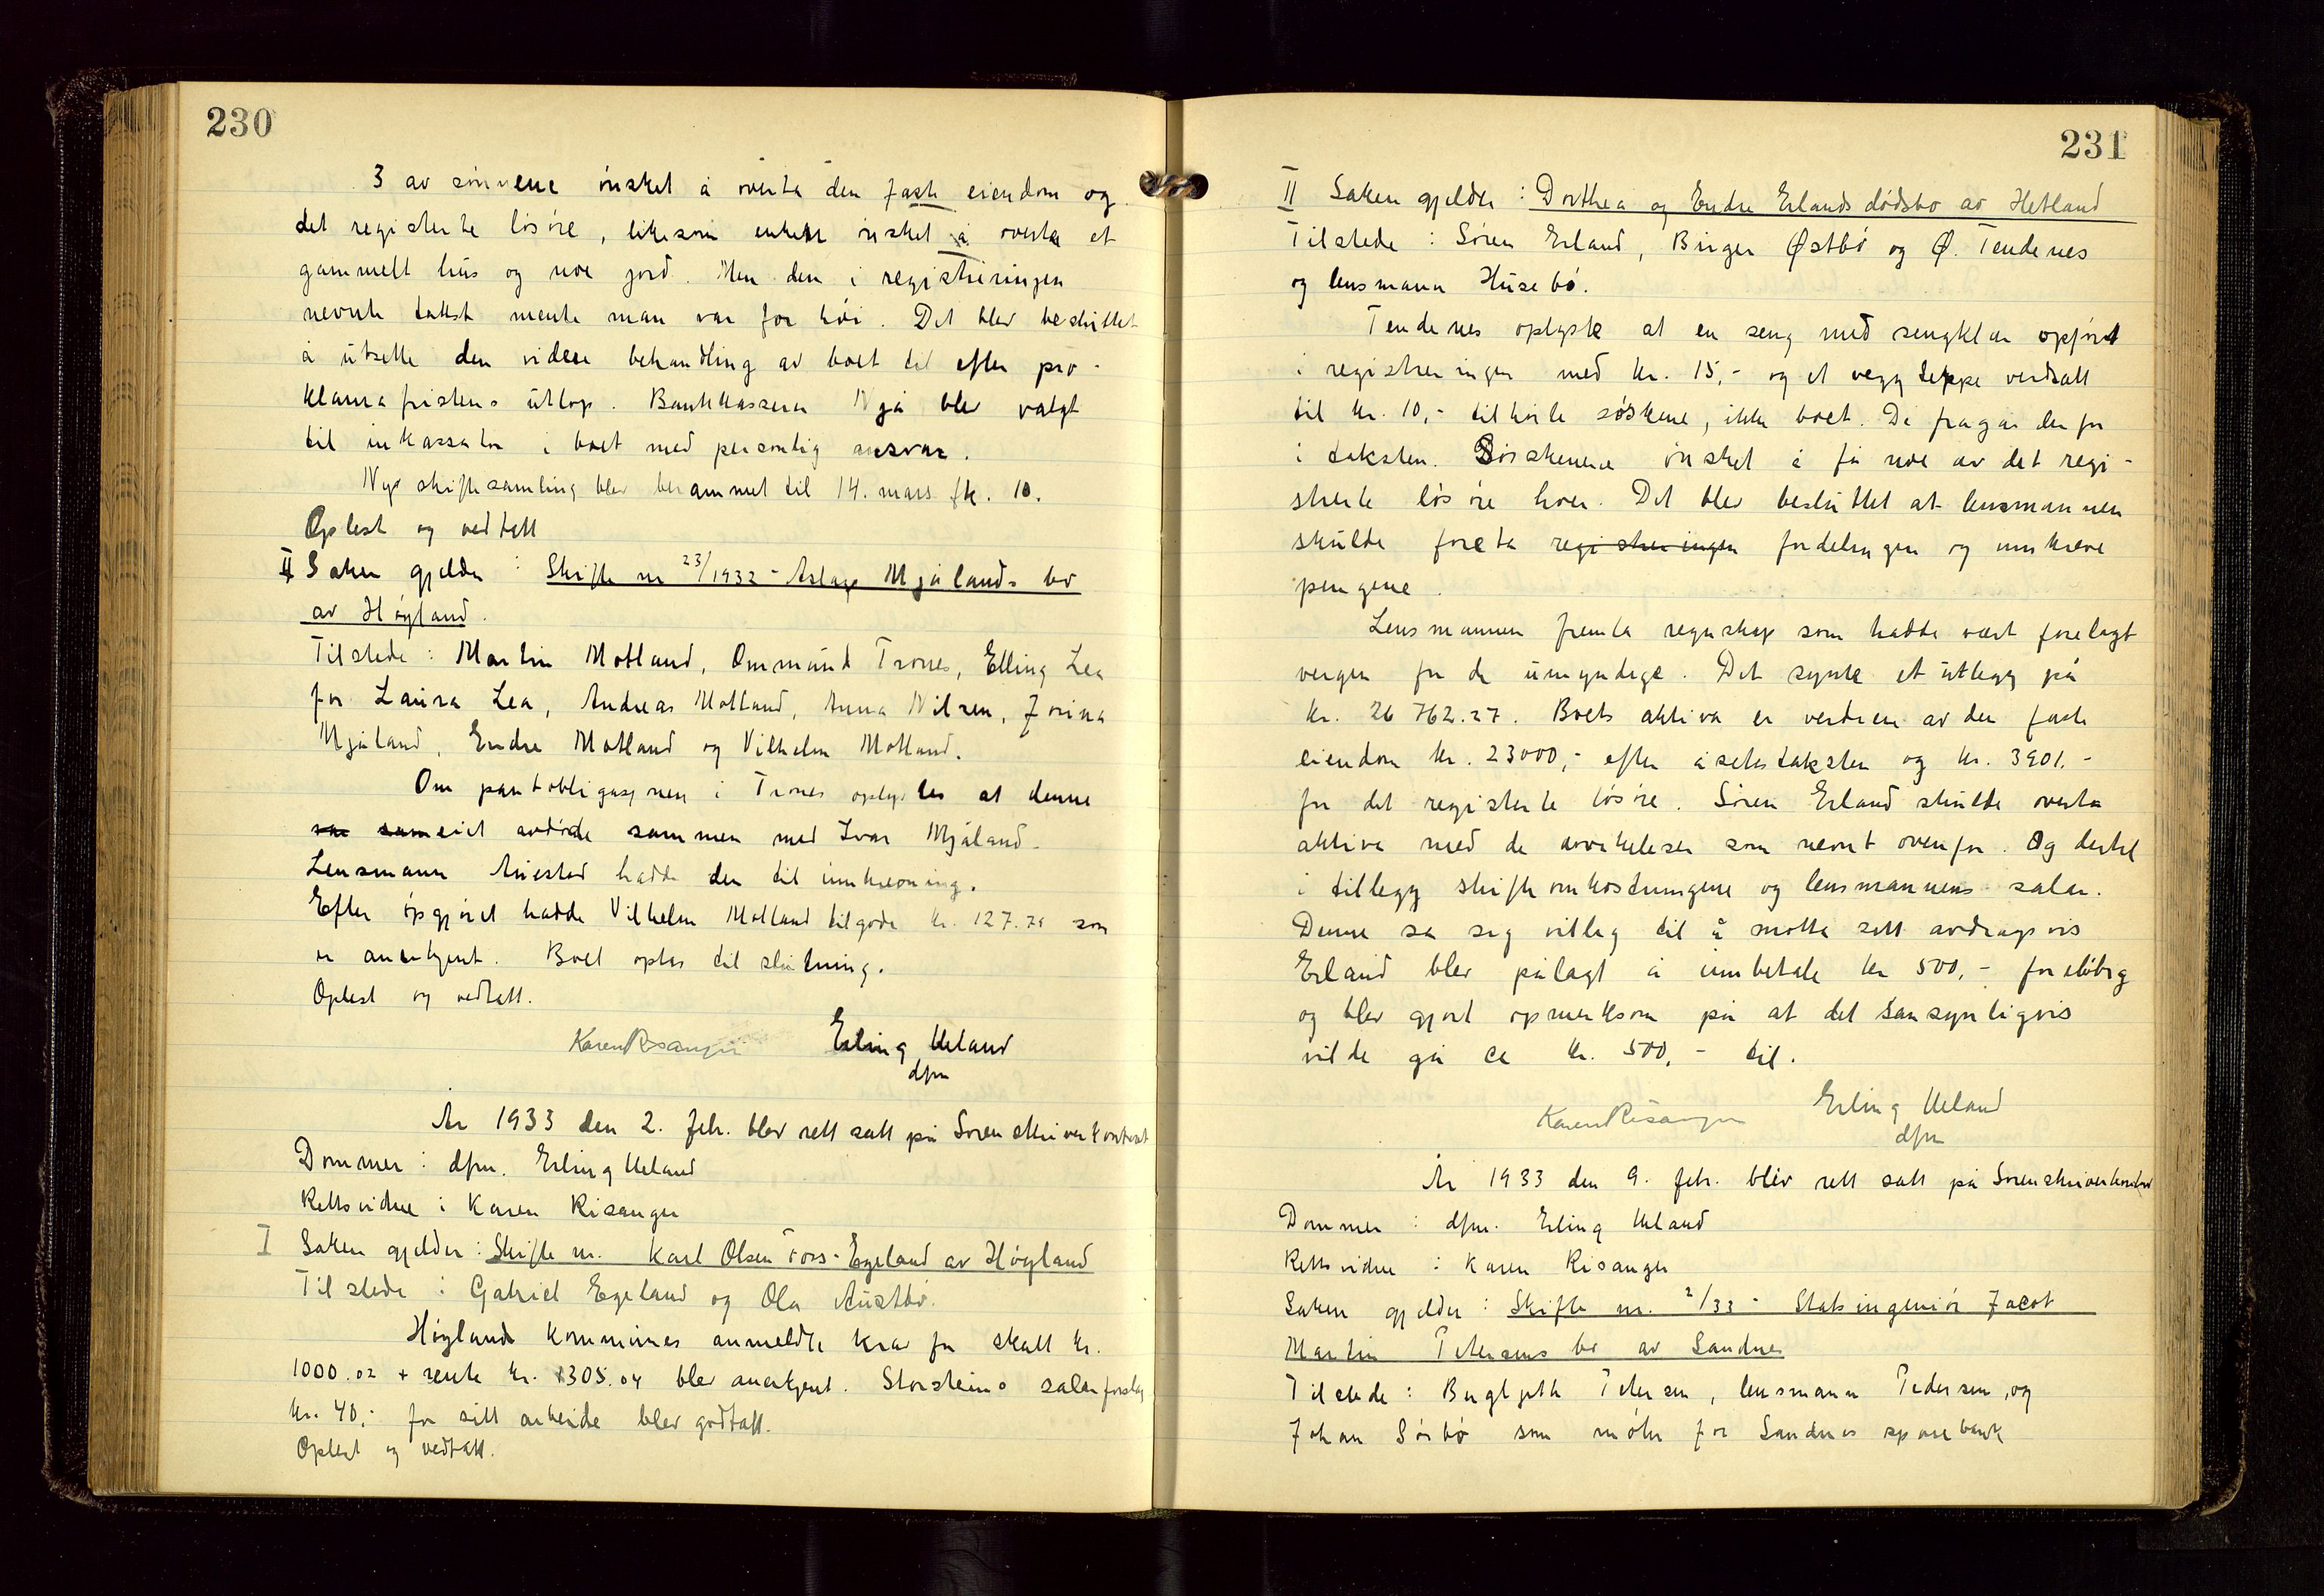 230
3 av sønnene ønsket å overta den faste eiendom og
det registerte løsøre, likesom enken ønsket å overta et
gammelt hus og noe jord. Men den i registreringen
nevnte takst mente man var for høi. Det blev besluttet
å utsette den videre behandling av boet til efter pro-
klamafristens utløp. Bankkasserer Njå blev valgt
til inkassator i boet med personlig ansvar.
Nye skiftesamling blev berammet til 14. mars fk. 10.
Oplest og vedtatt
II Saken gjelder : Skifte nr 23/1932 - Aslag Mjålands bo
av Høyland.
Tilstede : Martin Motland, Ommund Trones, Elling Lea
for Laura Lea, Andreas Motland, Anna Nilsen, Jorina
Mjåland, Endre Motland og Vilhelm Motland.
Om pantobligasjonen i Trones oplystes at denne
var som eiet avdøde sammen med Ivar Mjåland.
Lensmann Auestad hadde den til innkrevning.
Efter opgjøret hadde Vilhelm Motland tilgode kr. 127.71 som
er anerkjent. Boet optas til slutning.
Oplest og vedtatt.
Karen Risanger Erling Ueland
dfm
År 1933 den 2. febr. blev rett satt på Sorenskriverkontoret
Dommer : dfm. Erling Ueland
Rettsvidne : Karen Risanger
I Saken gjelder : Skifte nr. Karl Olsen Foss-Egeland av Høyland
Tilstede : Gabriel Egeland og Ola Austbø.
Høyland kommunes anmeldte krav for skatt kr.
1000.02 + rente kr. 1305.04 blev anerkjent. Storsteins salærforslag
kr. 40,- for sitt arbeide blev godtatt.
Oplest og vedtatt.
231
II Saken gjelder : Dorthea og Endre Erlands dødsbo av Hetland
Tilstede : Søren Erland, Birger Østbø og Ø. Tendenes
og lensmann Husebø.
Tendenes oplyste at en seng med sengklær opført
i registreringen med kr. 15,- og et veggteppe verdsatt
til kr. 10,- tilhørte søskene, ikke boet. De fragår derfor
i taksten. Søskenene ønsket å få noe av det regi-
strerte løsøre hver. Det blev besluttet at lensmannen
skulde foreta registreringen fordelingen og innkreve
pengene.
Lensmannen fremla regnskap som hadde vært forelagt
vergen for de umyndige. Det synte et utlegg på
kr. 26 762.27. Boets aktiva er verdien av den faste
eiendom kr. 23000,- efter åsetestaksten og kr. 3901.-
for det registerte løsøre. Søren Erland skulde overta
aktiva med de avvikelser som nevnt ovenfor. Og dertil
i tillegg skifteomkostningene og lensmannens salær.
Denne sa sig villig til å motta sitt avdragsvis
Erland blev pålagt å innbetale kr 500,- foreløbig
og blev gjort opmerksom på at det sansynligvis
vilde gå ca kr. 500,- til.
Karen Risanger Erling Ueland
dfm
År 1933 den 9. febr. blev rett satt på Sorenskriverkontoret
Dommer : dfm. Erling Ueland
Rettsvidne : Karen Risanger
Saken gjelder : Skifte nr. 2/33 - Statsingeniør Jacob
Martin Petersens bo av Sandnes
Tilstede : Bergljoth Petersen, lensmann Pedersen, og
Johan Sørbø som møter for Sandnes sparebank